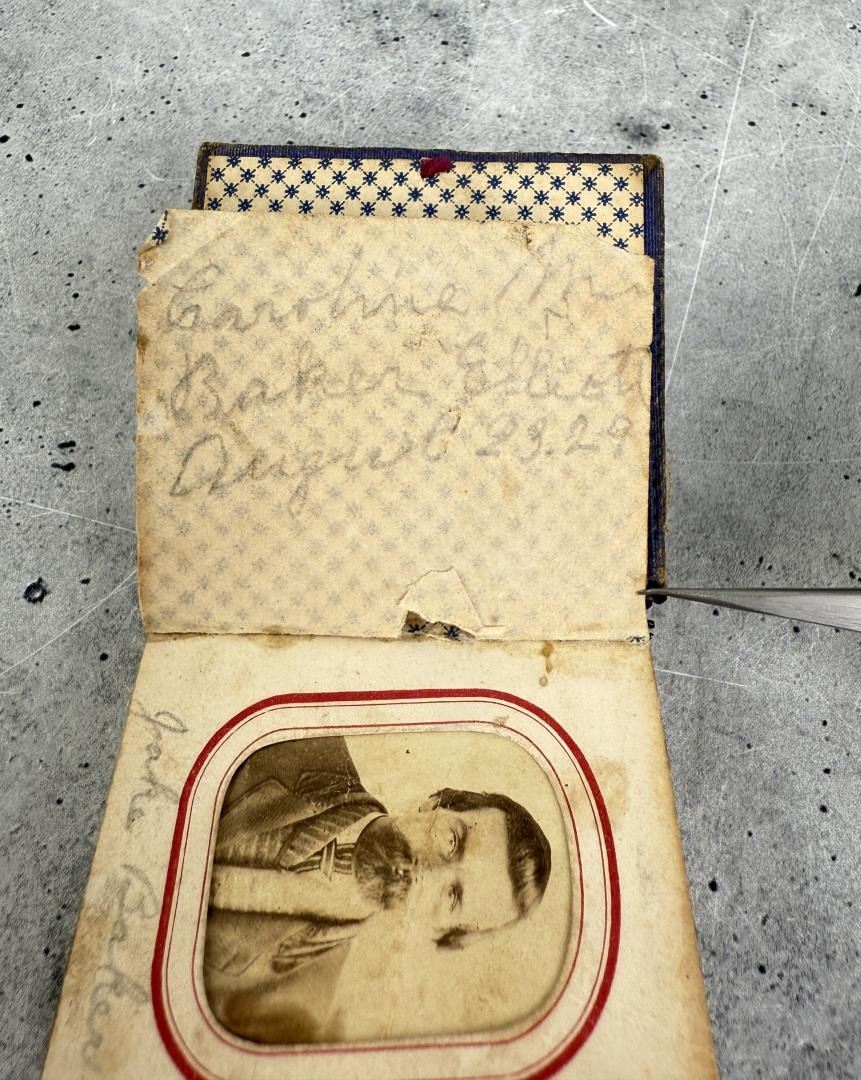 Caroline
Baker Elliott
August 23.29
Jake Baker